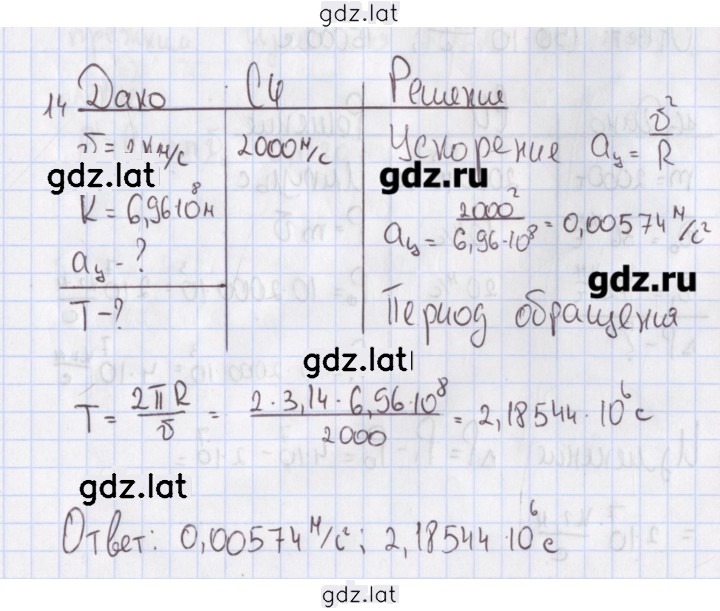 gdz.lat
14 Дано СИ Решение
v = 2 км/с 2000 м/с Ускорение aц = v²/R
gdz.lat gdz.ru
R = 6,96·10⁸ м aц = 2000²/6,96·10⁸ = 0,00574 м/с²
aц - ?
gdz.ru
T - ? Период обращения
gdz.lat
T = 2πR/v = 2·3,14·6,96·10⁸/2000 = 2,18544·10⁶ с
gdz.lat
Ответ: 0,00574 м/с²; 2,18544·10⁶ с
gdz.lat